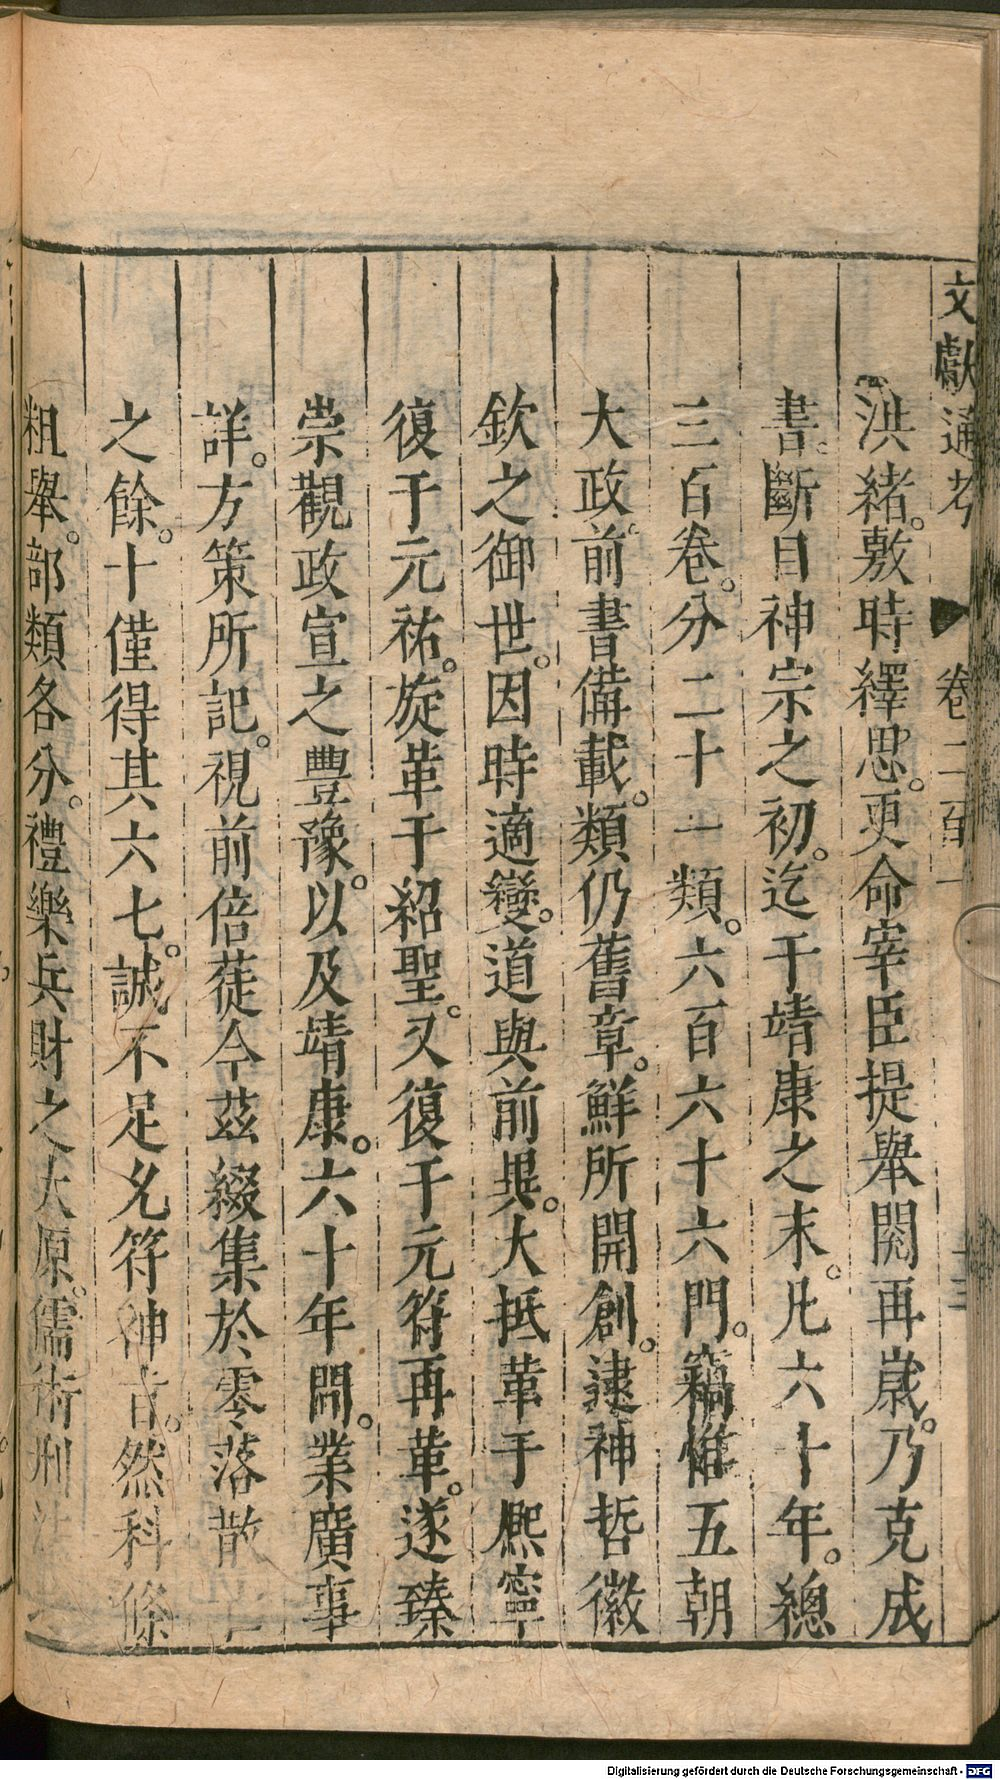 文獻通考　卷二百一　十三
洪緒。敷時繹思。更命宰臣提舉閱再嵗。乃克成
書。斷自神宗之初。迄于靖康之末。凡六十年。總
三百卷。分二十一類。六百六十六門。竊惟五朝
大政。前書備載。類仍舊章。鮮所開創。逮神哲徽
欽之御世。因時適變。道與前異。大抵革于熙寧
復于元祐。旋革于紹聖。又復于元符再革。遂臻
崇觀政宣之豐豫。以及靖康。六十年間。業廣事
詳。方策所記。視前倍蓰今茲綴集於零落散亡
之餘。十僅得其六七。誠不足允符神旨。然科條
粗舉。部類各分。禮樂兵財之大原。儒術刑法之
Digitalisierung gefördert durch die Deutsche Forschungsgemeinschaft - DFG